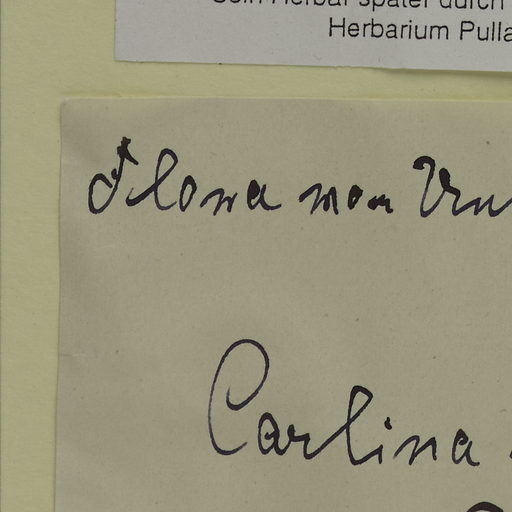 Sein Herbar später durch
Herbarium Pulla
Flora von
Carlina